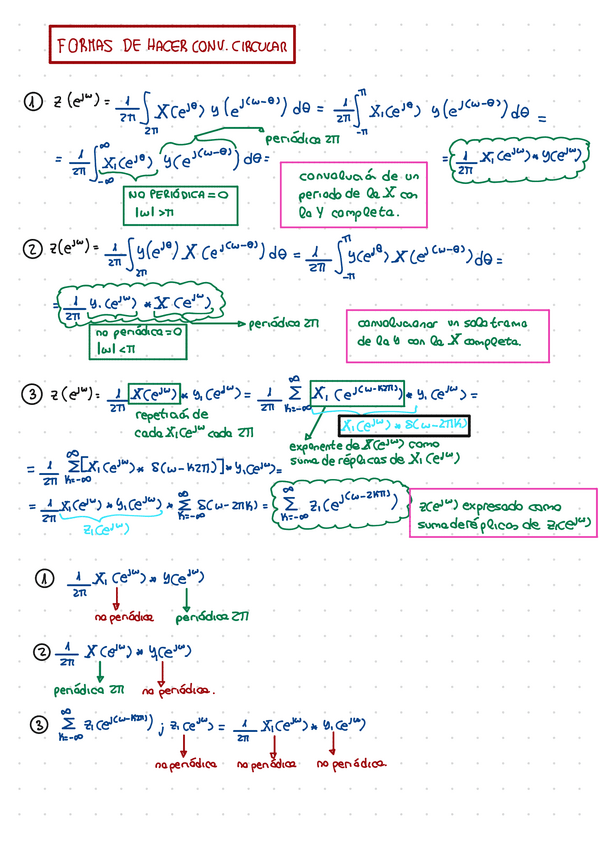 FORMAS DE HACER CONV. CIRCULAR
① z(e^jω) = 1/2π ∫_2π X(e^jθ) y(e^j(ω-θ)) dθ = 1/2π ∫_-π^π X₁(e^jθ) y(e^j(ω-θ)) dθ =
periódica 2π
= 1/2π ∫_-∞^∞ X₁(e^jθ) y(e^j(ω-θ)) dθ = = 1/2π X₁(e^jω) * y(e^jω)
NO PERIÓDICA = 0
|ω| > π
convolución de un
periodo de la X con
la Y completa.
② z(e^jω) = 1/2π ∫_2π y(e^jθ) X(e^j(ω-θ)) dθ = 1/2π ∫_-π^π y(e^jθ) X(e^j(ω-θ)) dθ =
= 1/2π y₁(e^jω) * X(e^jω)
periódica 2π
no periódica = 0
|ω| < π
convolucionar un solo trama
de la y con la X completa.
③ z(e^jω) = 1/2π X(e^jω) * y₁(e^jω) = 1/2π ∑_k=-∞^∞ X₁(e^j(ω-k2π)) * y₁(e^jω) =
X₁(e^jω) * δ(ω-2πk)
repetición de
cada X₁(e^jω cada 2π
exponente de X(e^jω) como
suma de réplicas de X₁(e^jω)
= 1/2π ∑_k=-∞^∞ [X₁(e^jω) * δ(ω-k2π)] * y₁(e^jω) =
= 1/2π X₁(e^jω) * y₁(e^jω) * ∑_k=-∞^∞ δ(ω-2πk) = ∑_k=-∞^∞ z₁(e^j(ω-2kπ))
z₁(e^jω)
z(e^jω) expresado como
suma de réplicas de z₁(e^jω)
① 1/2π X₁(e^jω) * y(e^jω)
no periódica periódica 2π
② 1/2π X(e^jω) * y₁(e^jω)
periódica 2π no periódica.
③ ∑_k=-∞^∞ z₁(e^j(ω-k2π)) ; z₁(e^jω) = 1/2π X₁(e^jω) * y₁(e^jω)
no periódica no periódica no periódica.